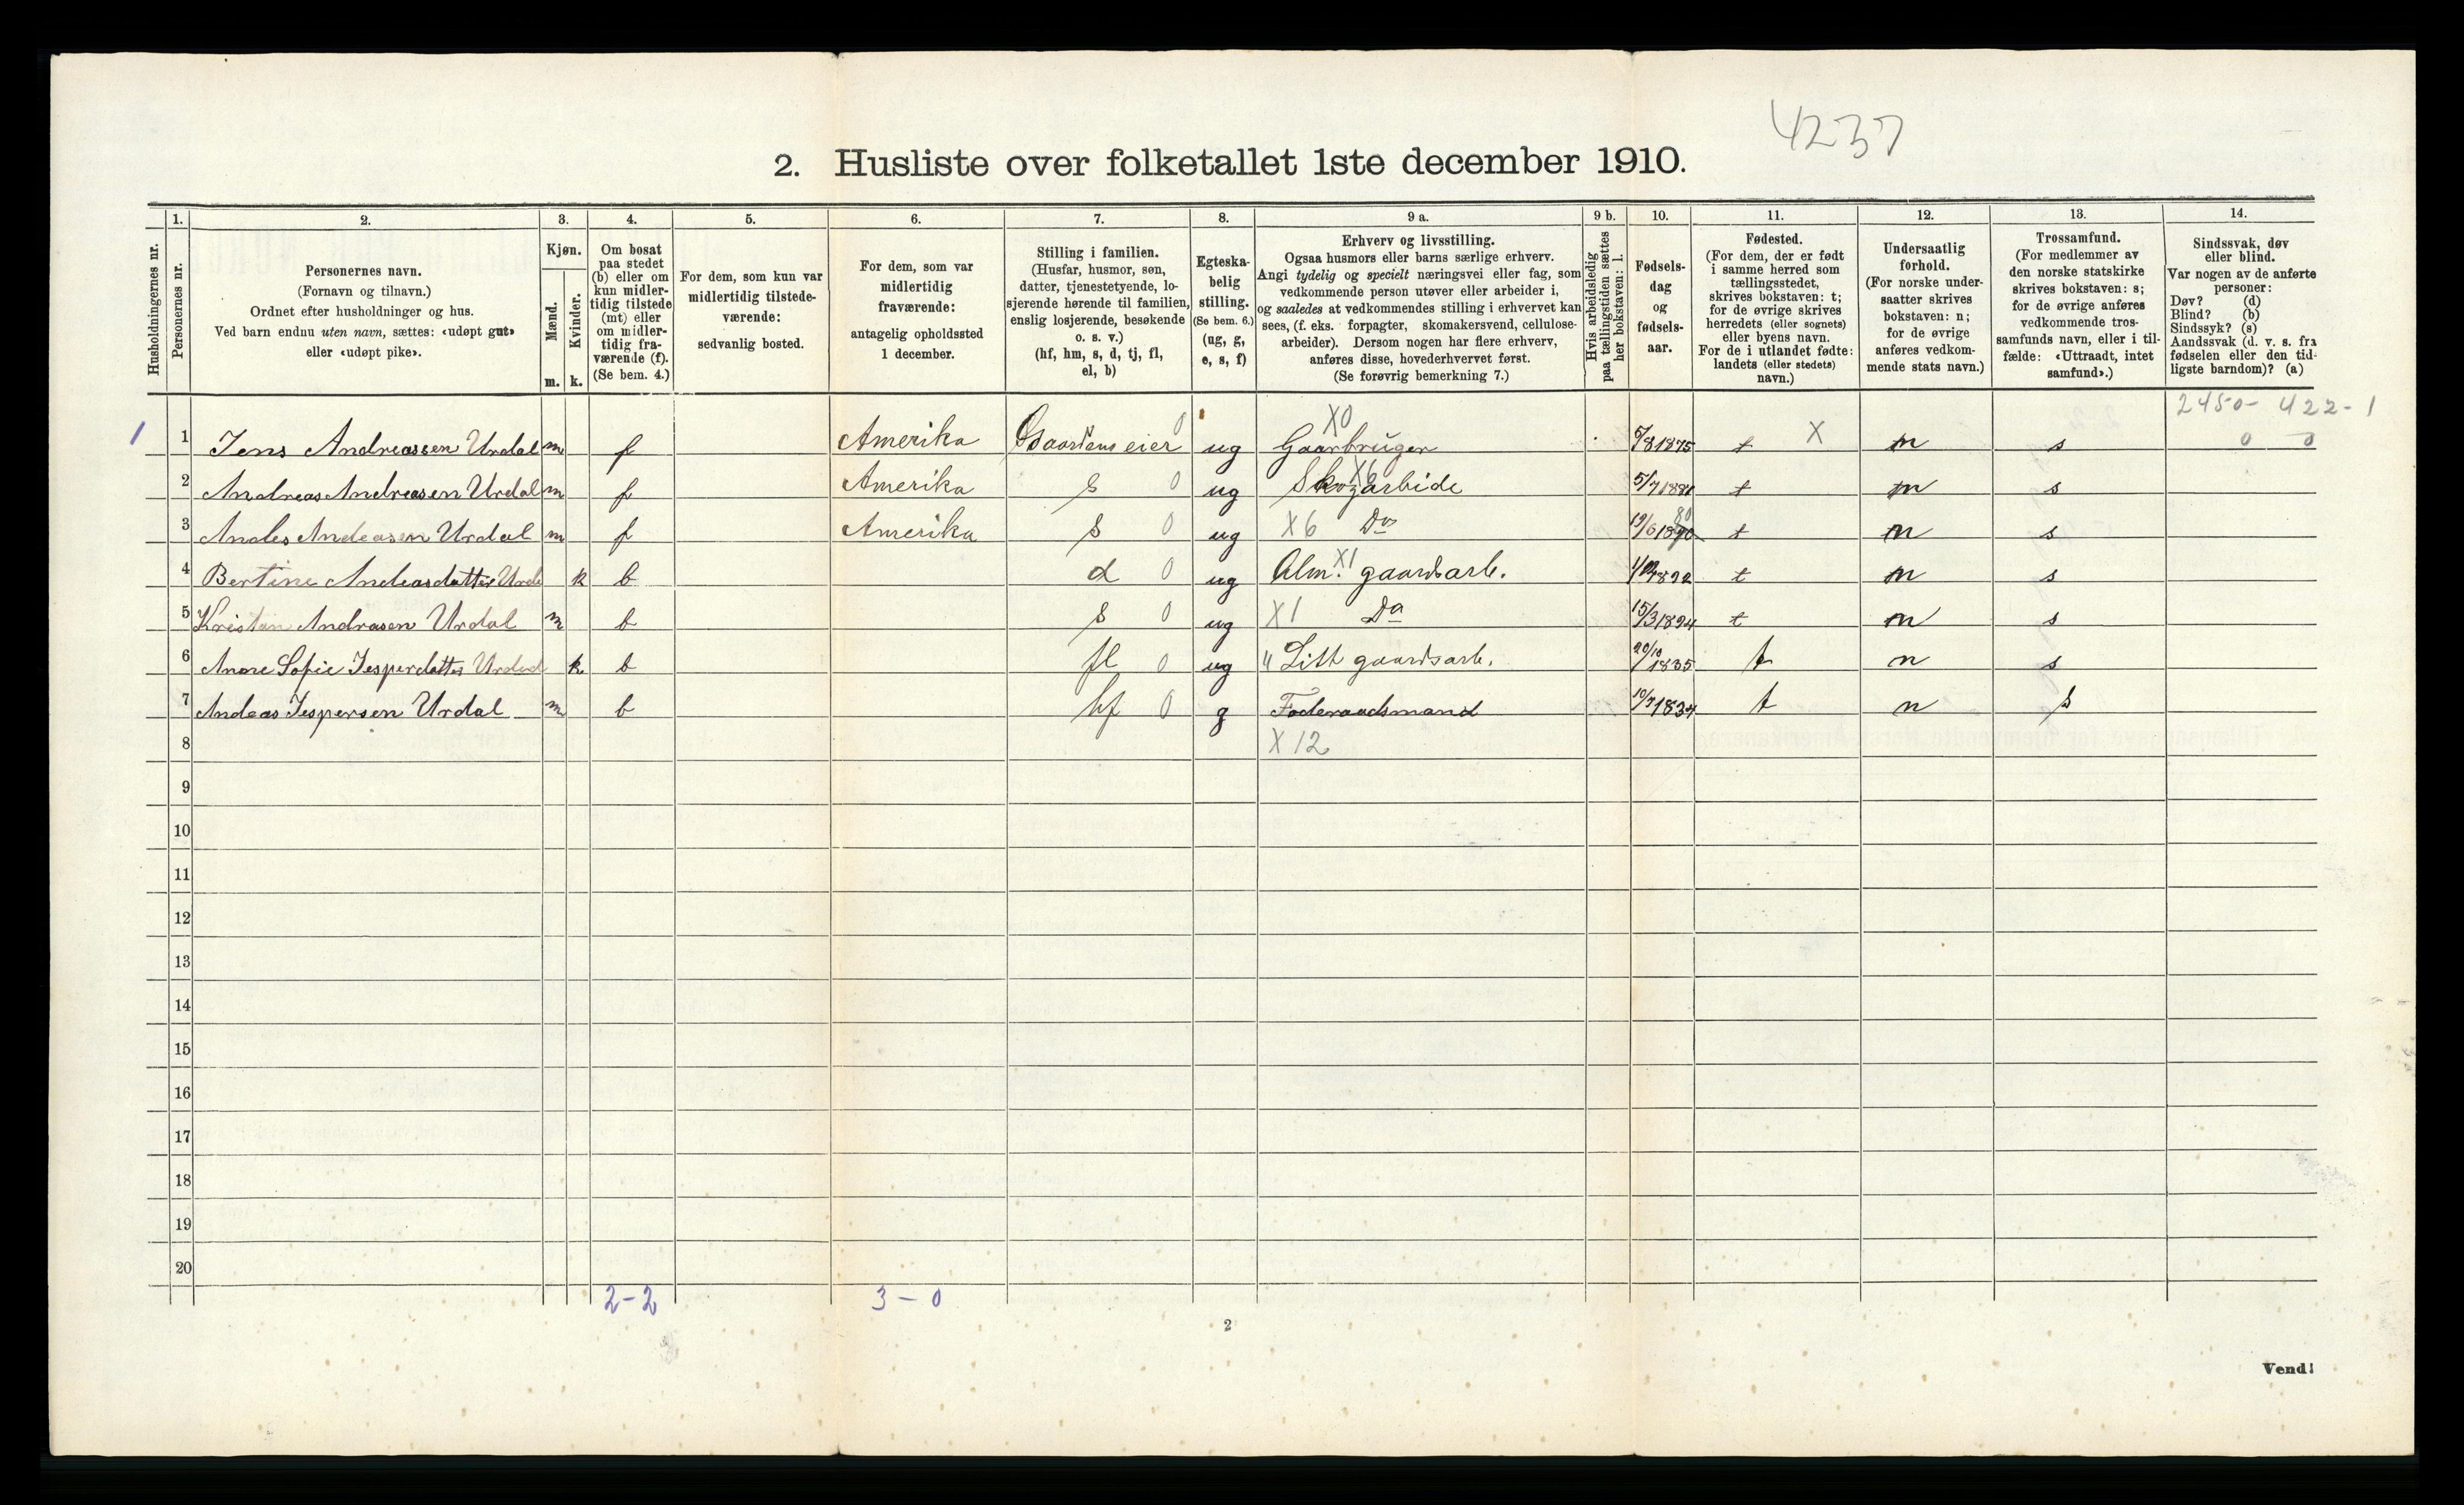 4237
2. Husliste over folketallet 1ste december 1910.
Husholdningernes nr.
1. Personernes nr.
2. Personernes navn.
(Fornavn og tilnavn.)
Ordnet efter husholdninger og hus.
Ved barn endnu uten navn, sættes: «udøpt gut»
eller «udøpt pike».
3. Kjøn.
Mænd. m.
Kvinder. k.
4. Om bosat
paa stedet
(b) eller om
kun midler-
tidig tilstede
(mt) eller
om midler-
tidig fra-
værende (f).
(Se bem. 4.)
5. For dem, som kun var
midlertidig tilstede-
værende:
sedvanlig bosted.
6. For dem, som var
midlertidig
fraværende:
antagelig opholdssted
1 december.
7. Stilling i familien.
(Husfar, husmor, søn,
datter, tjenestetyende, lo-
sjerende hørende til familien,
enslig losjerende, besøkende
o. s. v.)
(hf, hm, s, d, tj, fl,
el, b)
8. Egteska-
belig
stilling.
(Se bem. 6.)
(ug, g,
e, s, f)
9 a. Erhverv og livsstilling.
Ogsaa husmors eller barns særlige erhverv.
Angi tydelig og specielt næringsvei eller fag, som
vedkommende person utøver eller arbeider i,
og saaledes at vedkommendes stilling i erhvervet kan
sees, (f. eks. forpagter, skomakersvend, cellulose-
arbeider). Dersom nogen har flere erhverv,
anføres disse, hovederhvervet først.
(Se forøvrig bemerkning 7.)
9 b. Hvis arbeidsledig
paa tællingstiden sættes
her bokstaven: l.
10. Fødsels-
dag
og
fødsels-
aar.
11. Fødested.
(For dem, der er født
i samme herred som
tællingsstedet,
skrives bokstaven: t;
for de øvrige skrives
herredets (eller sognets)
eller byens navn.
For de i utlandet fødte:
landets (eller stedets)
navn.)
12. Undersaatlig
forhold.
(For norske under-
saatter skrives
bokstaven: n;
for de øvrige
anføres vedkom-
mende stats navn.)
13. Trossamfund.
(For medlemmer av
den norske statskirke
skrives bokstaven: s;
for de øvrige anføres
vedkommende tros-
samfunds navn, eller i til-
fælde: «Uttraadt, intet
samfund».)
14. Sindssvak, døv
eller blind.
Var nogen av de anførte
personer:
Døv? (d)
Blind? (b)
Sindssyk? (s)
Aandssvak (d. v. s. fra
fødselen eller den tid-
ligste barndom)? (a)
2450- 422-1
X0
1 1 Jens Andreassen Urdal m f Amerika Gaardens eier 0 ug Gaarbruger 5/8 1875 t X n s 0 0
2 Andreas Andreasen Urdal m f Amerika s 0 ug Skogarbide X6 5/7 1881 t n s
3 Andes Andeasen Urdal m f Amerika s 0 ug X6 Do 19/6 1890 80 t n s
4 Bertine Andeasdatter Urda k b d 0 ug Alm. X1 gaardsarb. 1892 t n s
5 Kristan Andrasen Urdal m b s 0 ug X1 Do 15/3 1894 t n s
6 Anne Sofie Jesperdatter Urdal k b fl 0 ug " Litt gaardsarb. 20/10 1835 t n s
7 Andeas Jespersen Urdal m b hf 0 g Føderaadsmand 10/7 1834 t n s
8 X 12
9
10
11
12
13
14
15
16
17
18
19
20
2-2 3-0
2
Vend!